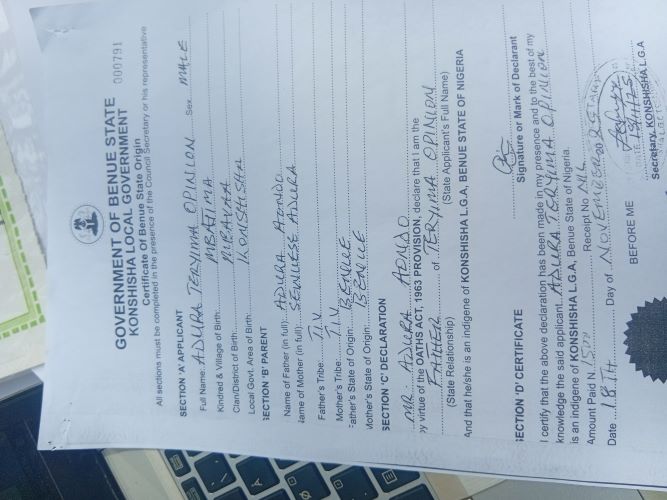 GOVERNMENT OF BENUE STATE
KONSHISHA LOCAL GOVERNMENT
000791
Certificate Of Benue State Origin
All sections must be completed in the presence of the Council Secretary or his representative
SECTION 'A' APPLICANT
Full Name: ADURA TERYIMA OPINION Sex MALE
Kindred & Village of Birth: MBATIMA
Clan/District of Birth:
Local Govt. Area of Birth: KONSHISHA
SECTION 'B' PARENT
Name of Father (in full): ADURA AONDO
Name of Mother (in full): SEWUESE ADURA
Father's Tribe: TIV
Mother's Tribe: TIV
Father's State of Origin: BENUE
Mother's State of Origin: BENUE
SECTION 'C' DECLARATION
MR. ADURA AONDO
by virtue of the OATHS ACT, 1963 PROVISION, declare that I am the
FATHER of TERYIMA OPINION
(State Relationship) (State Applicant's Full Name)
And that he/she is an indigene of KONSHISHA L.G.A, BENUE STATE OF NIGERIA
Signature or Mark of Declarant
SECTION 'D' CERTIFICATE
I certify that the above declaration has been made in my presence and to the best of my
knowledge the said applicant ADURA TERYIMA OPINION
is an indigene of KONSHISHA L.G.A, Benue State of Nigeria.
Amount Paid N 1500 Receipt No NIL
Date 18TH Day of NOVEMBER
BEFORE ME
Secretary, KONSHISHA L.G.A